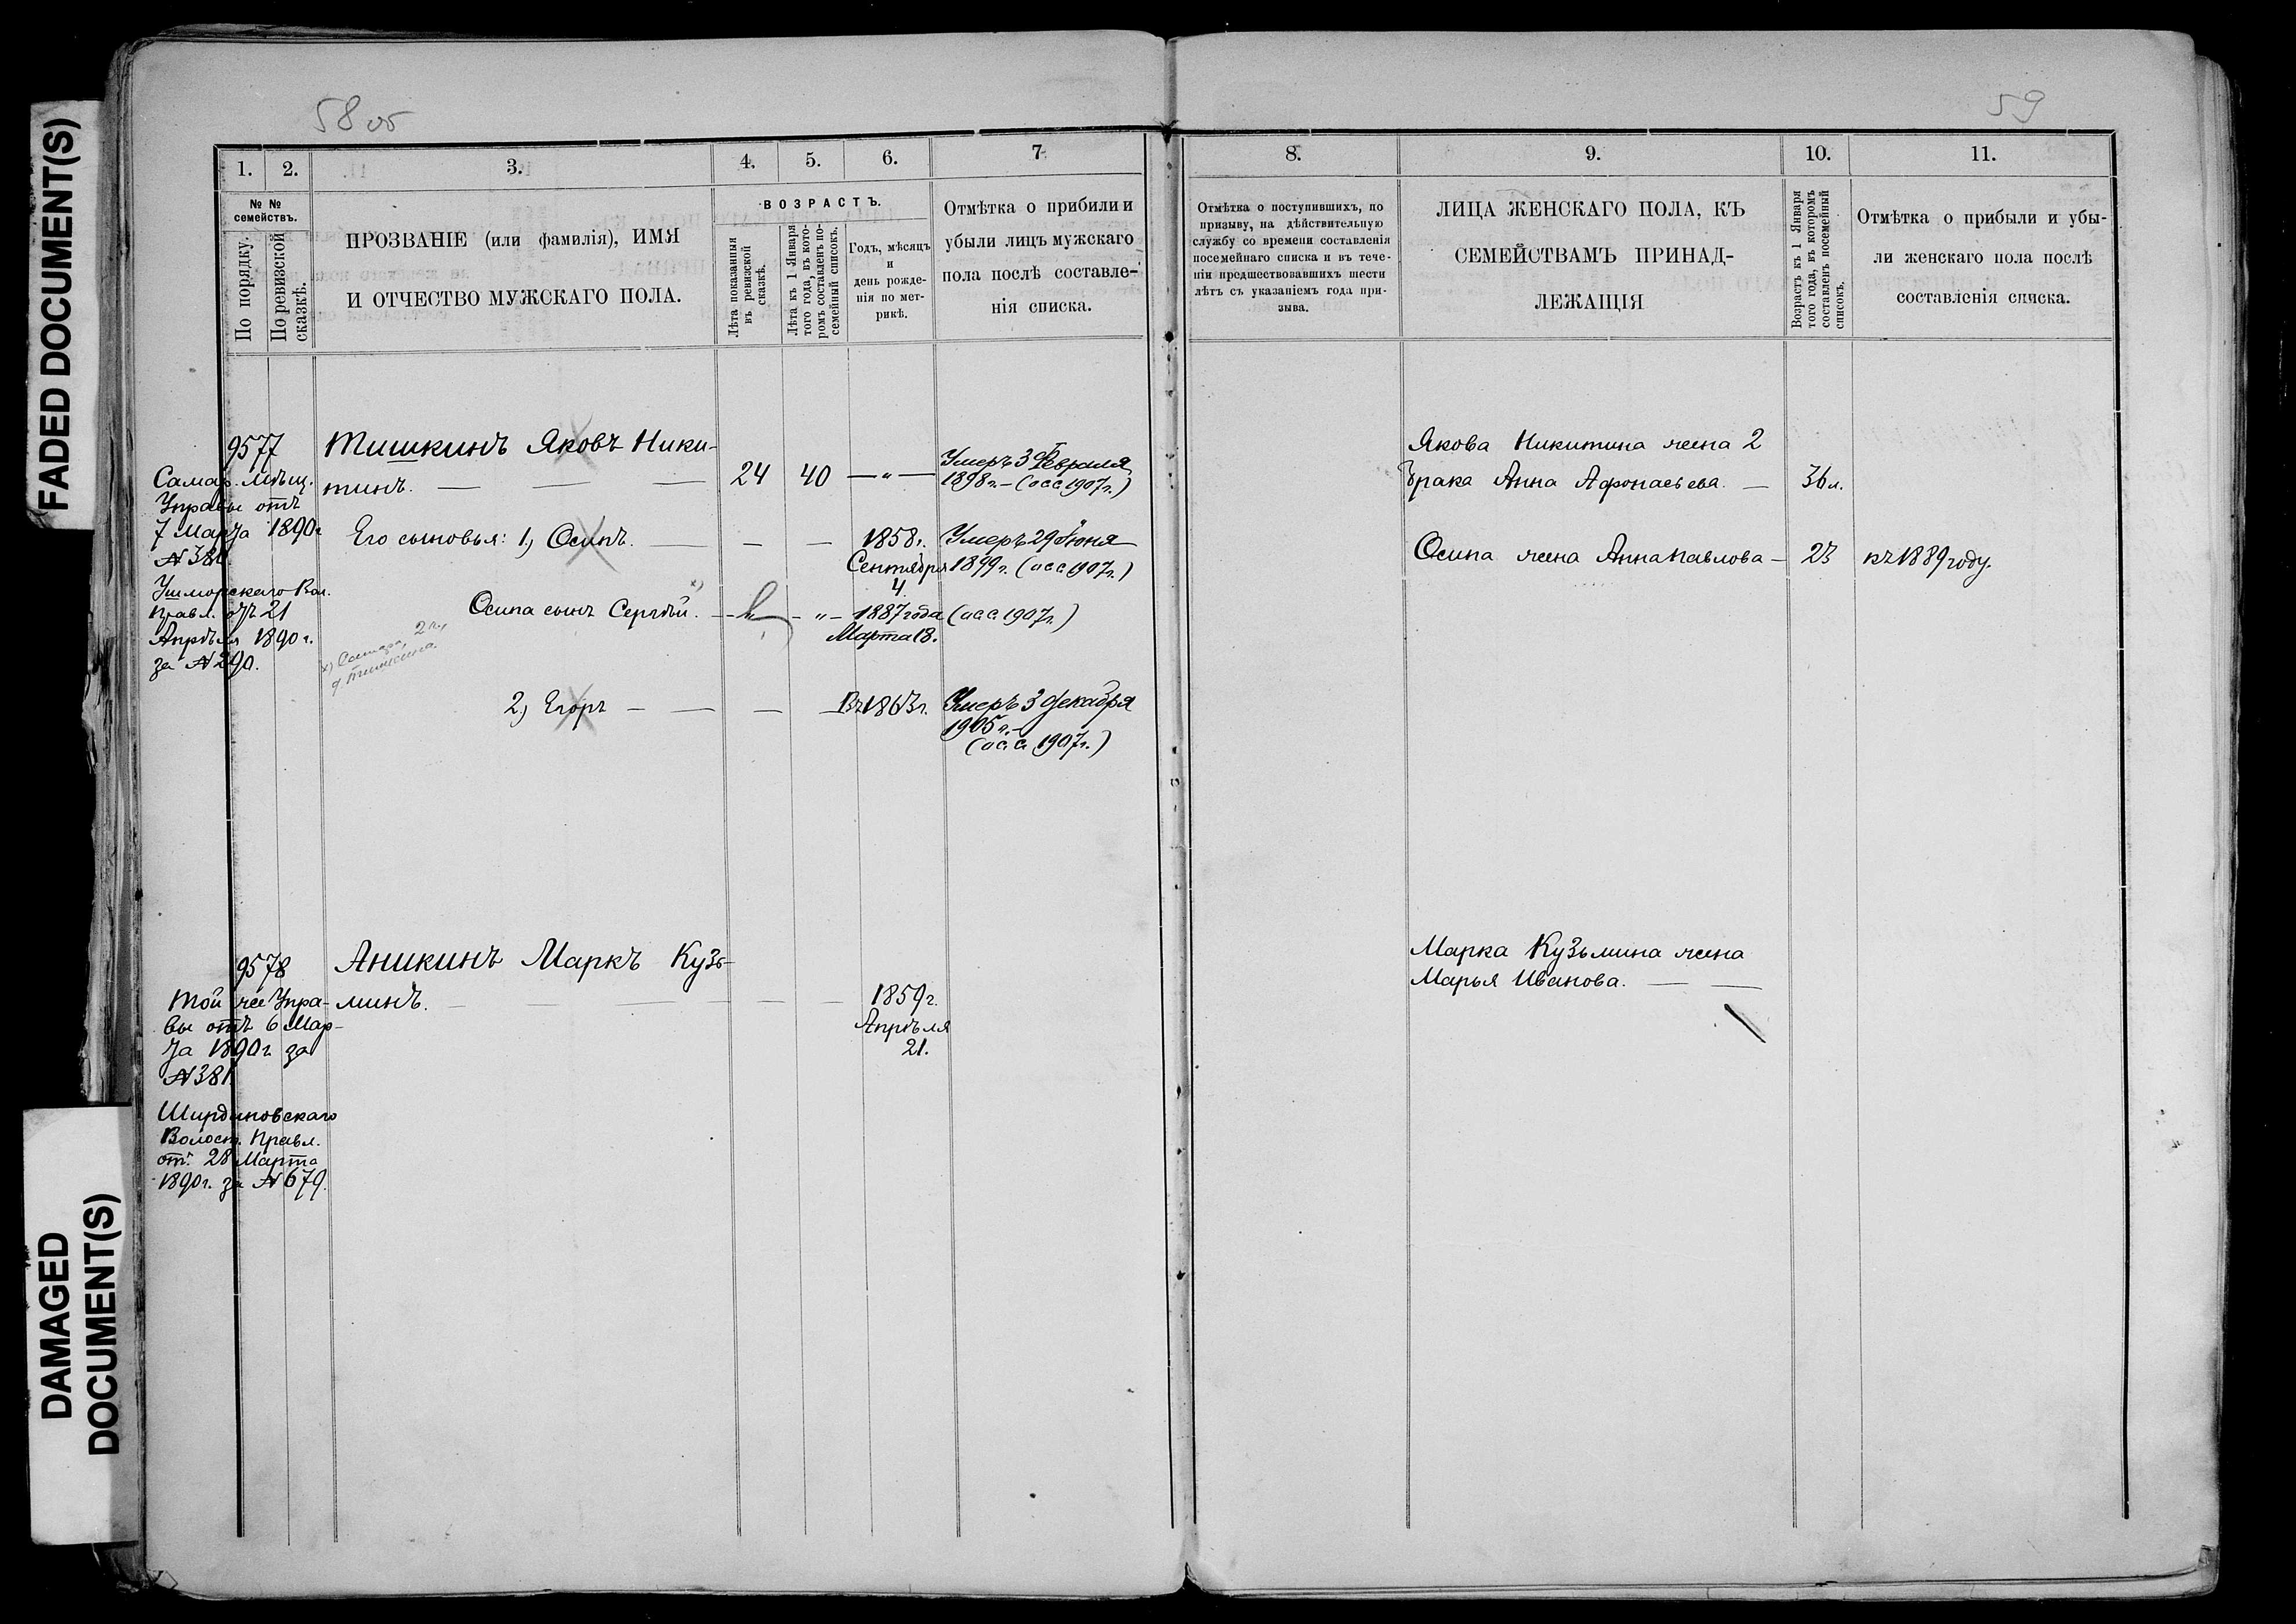 FADED DOCUMENT(S)
DAMAGED
DOCUMENT(S)
58 об
59
1.
2.
3.
4.
5.
6.
7
№ №
семействъ.
По порядку.
По ревизской
сказкѣ.
ПРОЗВАНІЕ (или фамилія), ИМЯ
И ОТЧЕСТВО МУЖСКАГО ПОЛА.
ВОЗРАСТЪ.
Лѣта показанныя
въ ревизской
сказкѣ.
Лѣта къ 1 Января
того года, въ кото-
ромъ составленъ по-
семейный списокъ.
Годъ, мѣсяцъ
и
день рожде-
нія по мет-
рикѣ.
Отмѣтка о прибили и
убыли лицъ мужскаго
пола послѣ составле-
нія списка.
8.
9.
10.
11.
Отмѣтка о поступившихъ, по
призыву, на дѣйствительную
службу со времени составленія
посемейнаго списка и въ тече-
ніи предшествовавшихъ шести
лѣтъ съ указаніемъ года при-
зыва.
ЛИЦА ЖЕНСКАГО ПОЛА, КЪ
СЕМЕЙСТВАМЪ ПРИНАД-
ЛЕЖАЩІЯ
Возрастъ къ 1 Января
того года, въ которомъ
составленъ посемейный
списокъ.
Отмѣтка о прибыли и убы-
ли женскаго пола послѣ
составленія списка.
9577
Самар. Мѣщ.
Управы отъ
7 Марта 1890г
№ 380.
Правл. отъ 21
Апрѣля 1890 г.
за № 290.
Тишкинъ Яковъ Ники-
тинъ. — — —
24
40
— „ —
Умеръ 3 Февраля
1898 г. — (осс 1907 г.)
Его сыновья: 1) Осипъ. — — —
1858 г.
Сентября
4.
Умеръ 29 Іюня
1899 г. (осс 1907 г.)
Осипа сынъ Сергѣй. х)
— „ —
1887 года
Марта 18.
(осс 1907 г.)
х) Самара,
2) Егоръ — — — —
Въ 1863 г.
Умеръ 3 Декабря
1905 г. —
(осс 1907 г.)
Якова Никитина жена 2
брака Анна Афонасьева. —
36 л.
Осипа жена Анна Павлова —
23
къ 1889 году.
9578
Той же Упра-
вы отъ 6 Мар-
та 1890 г. за
№ 381
Ширдановскаго
Волост. Правл.
отъ 28 Марта
1890 г. за № 679.
Аникинъ Маркъ Кузь-
минъ. — — — — —
1859 г.
Апрѣля
21.
Марка Кузьмина жена
Марья Иванова. — —